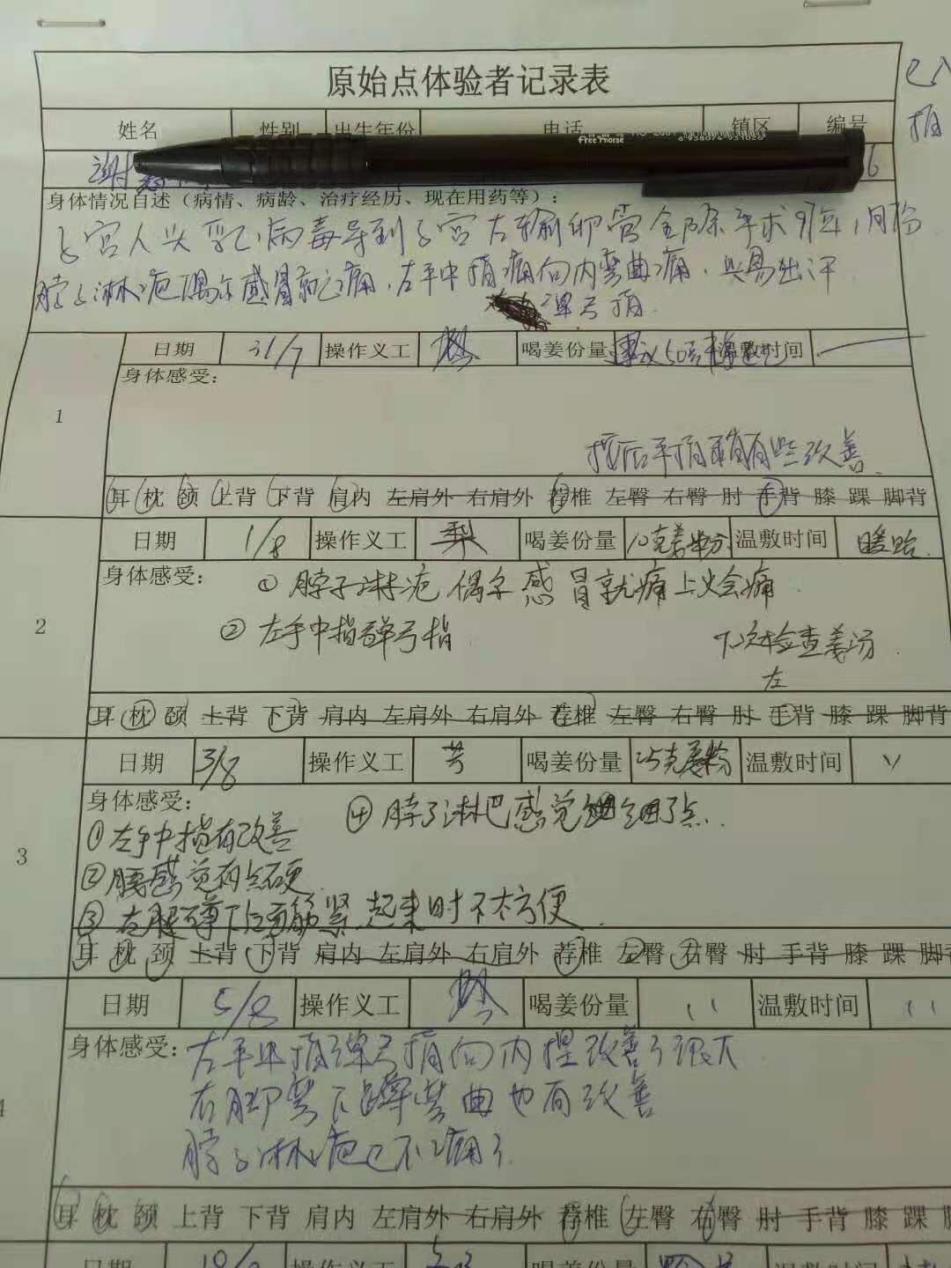 原始点体验者记录表
姓名 性别 出生年份 电话 镇区 编号
Free Horse
谢 6
身体情况自述（病情、病龄、治疗经历、现在用药等）：
子宫人头乳 病毒导到子宫左输卵管全除手术 年1月份
脖子淋疤偶尔感冒就痛，左手中指痛向内弯曲痛，出汗
弹弓指
日期 31/7 操作义工 喝姜份量 建议50克 温敷时间
身体感受：
1
按后手指稍有些改善
耳 枕 颈 上背 下背 肩内 左肩外 右肩外 荐椎 左臀 右臀 肘 手背 膝 踝 脚背
日期 1/8 操作义工 梨 喝姜份量 10克姜粉 温敷时间 暖贴
2
身体感受：①脖子淋疤偶尔感冒就痛上火会痛
②左手中指弹弓指
下次检查姜汤
左
耳 枕 颈 上背 下背 肩内 左肩外 右肩外 荐椎 左臀 右臀 肘 手背 膝 踝 脚背
日期 3/8 操作义工 芳 喝姜份量 25克姜粉 温敷时间 \\
3
身体感受： ④脖子淋巴感觉细了点
①左手中指有改善
②腰感觉有点硬
③右腿 下 面筋紧，起来时不太方便
耳 枕 颈 上背 下背 肩内 左肩外 右肩外 荐椎 左臀 右臀 肘 手背 膝 踝 脚
日期 5/8 操作义工 喝姜份量 \\ 温敷时间 \\
4
身体感受：左手中指弹弓指向内 改善了很大
右脚弯下蹲弯曲也有改善
脖子淋疤已不痛了
耳 枕 颈 上背 下背 肩内 左肩外 右肩外 荐椎 左臀 右臀 肘 手背 膝 踝
日期 操作义工 喝姜份量 温敷时间